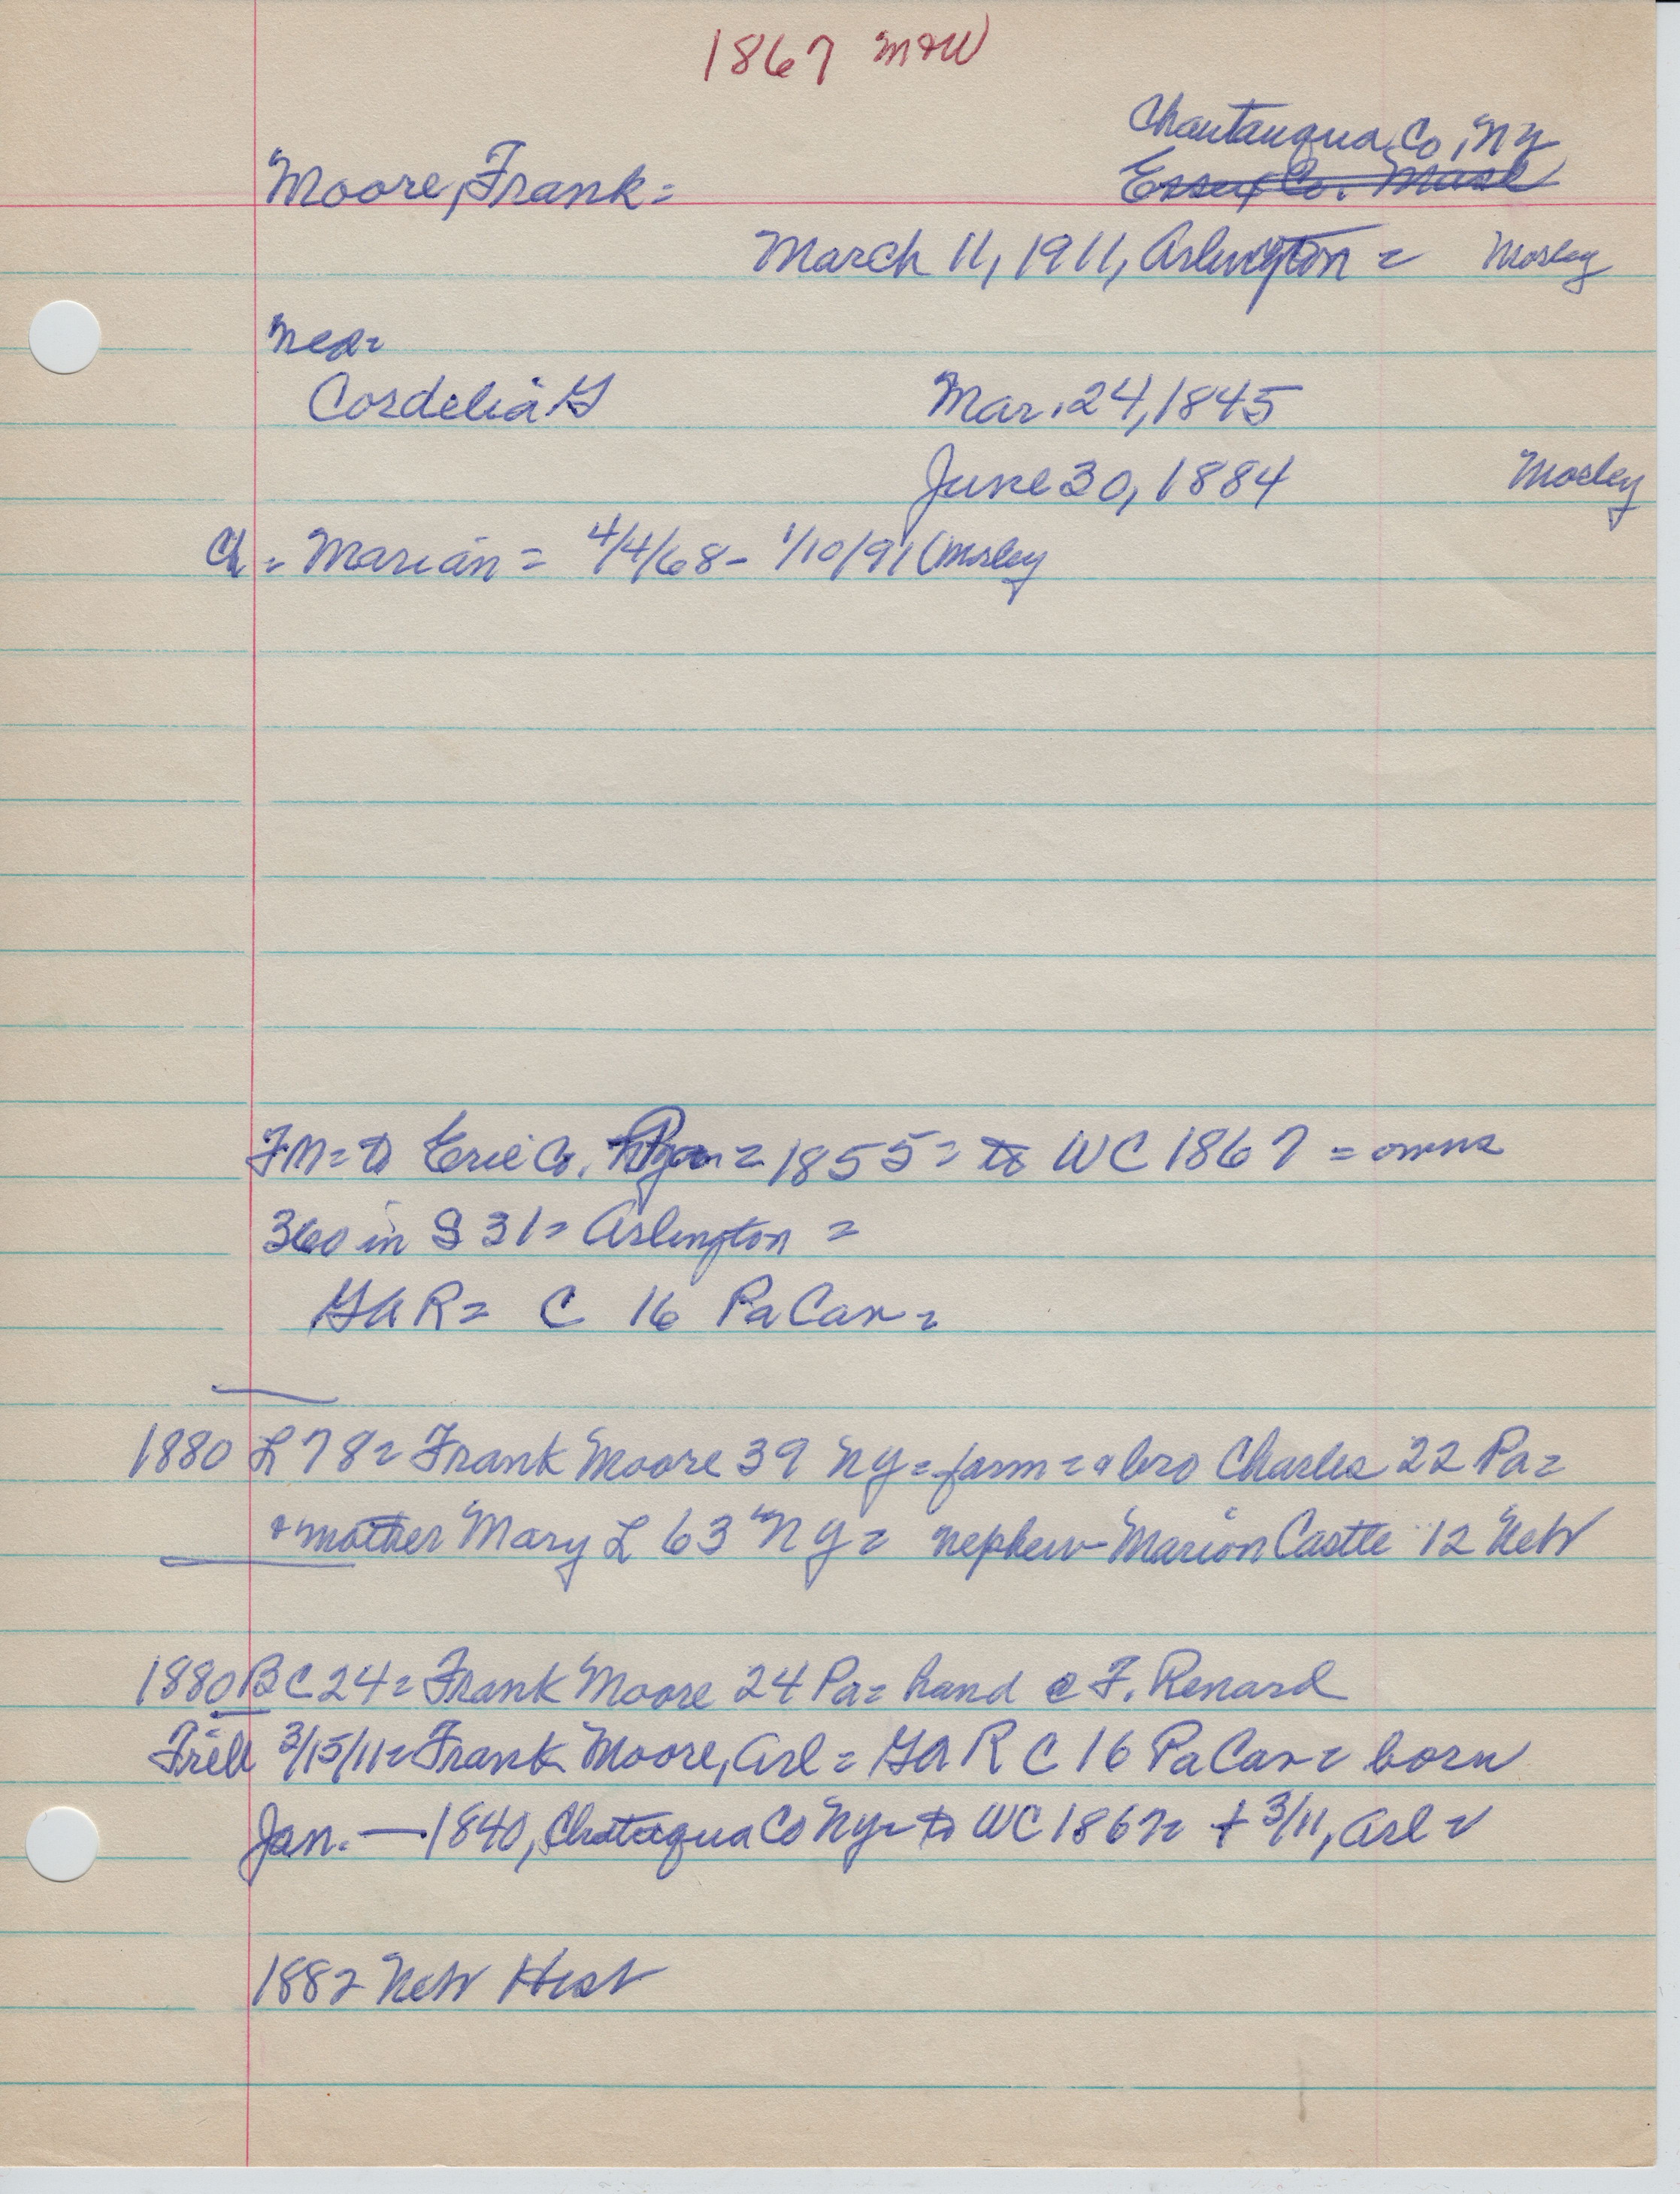 1867 M+W
Chautauqua Co, NY
Moore, Frank = Essex Co. Mass
March 11, 1911, Arlington = Mosley
Med=
Cordelia G Mar. 24, 1845
June 30, 1884 Mosley
Ch = Marian = 4/4/68 - 1/10/91 (Mosley
FM = to Erie Co. = 1855 = to WC 1867 = owns
360 in S 31 = Arlington =
GAR = C 16 Pa Cav =
1880 L 78 = Frank Moore 39 NY = farm = + bro Charles 22 Pa =
+ mother Mary L 63 NY = nephew Marion Castle 12 Neb
1880 BC 24 = Frank Moore 24 Pa = hand @ F. Renard
3/15/11 = Frank Moore, Arl = GAR C 16 Pa Cav = born
Jan. — 1840, Chatauqua Co NY = to WC 1867 = + 3/11, Arl =
1882 Neb Hist